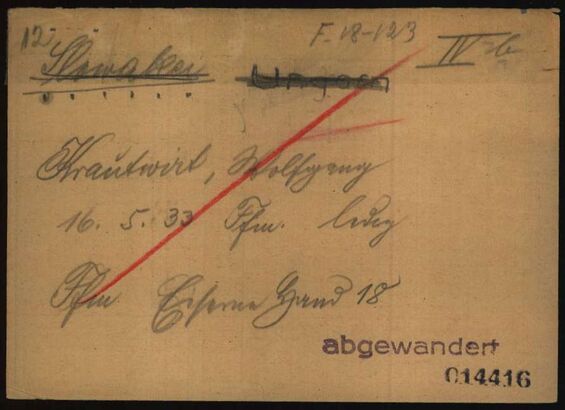 12. F-18-123 IV b
Slowakei Ungarn
Krautwirt, Wolfgang
16. 5. 33 Ffm. ledig
Ffm Eiserne Hand 18
abgewandert
014416